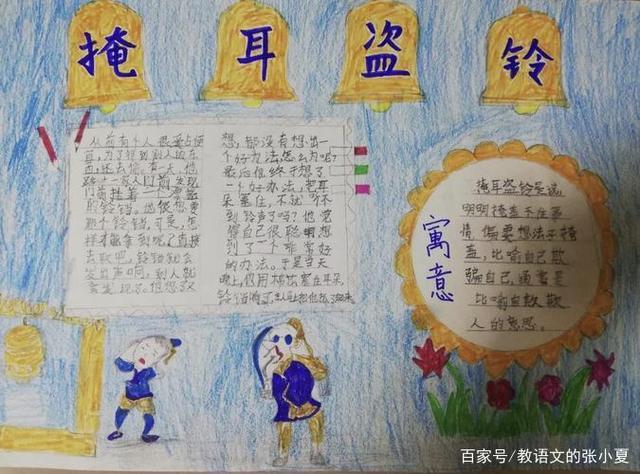 掩耳盗铃
从前有个人很爱占便
宜,为了得到别人的东
西,还去偷。有一天,他
路
门前挂着一个
的铃铛。他很想要
那个铃铛,可是,怎
样才能拿到呢?直接
去取吧,铃铛就会
发出声响,别人就
会发现了。他想了又
想,都没有想出一
个好办法,怎么办呢?
最后他终于想了
一个好办法,把耳
朵塞住,不就听不
到铃声了吗?他觉
得自己很聪明,想
到了一个非常好
的办法。于是当天
晚上,他用棉花塞住耳朵,
铃铛响了,主人把他抓了起来
寓意
掩耳盗铃是说,
明明掩盖不住事
情,偏要想法子掩
盖,比喻自己欺
骗自己,通常是
比喻自欺欺
人的意思。
百家号/教语文的张小夏